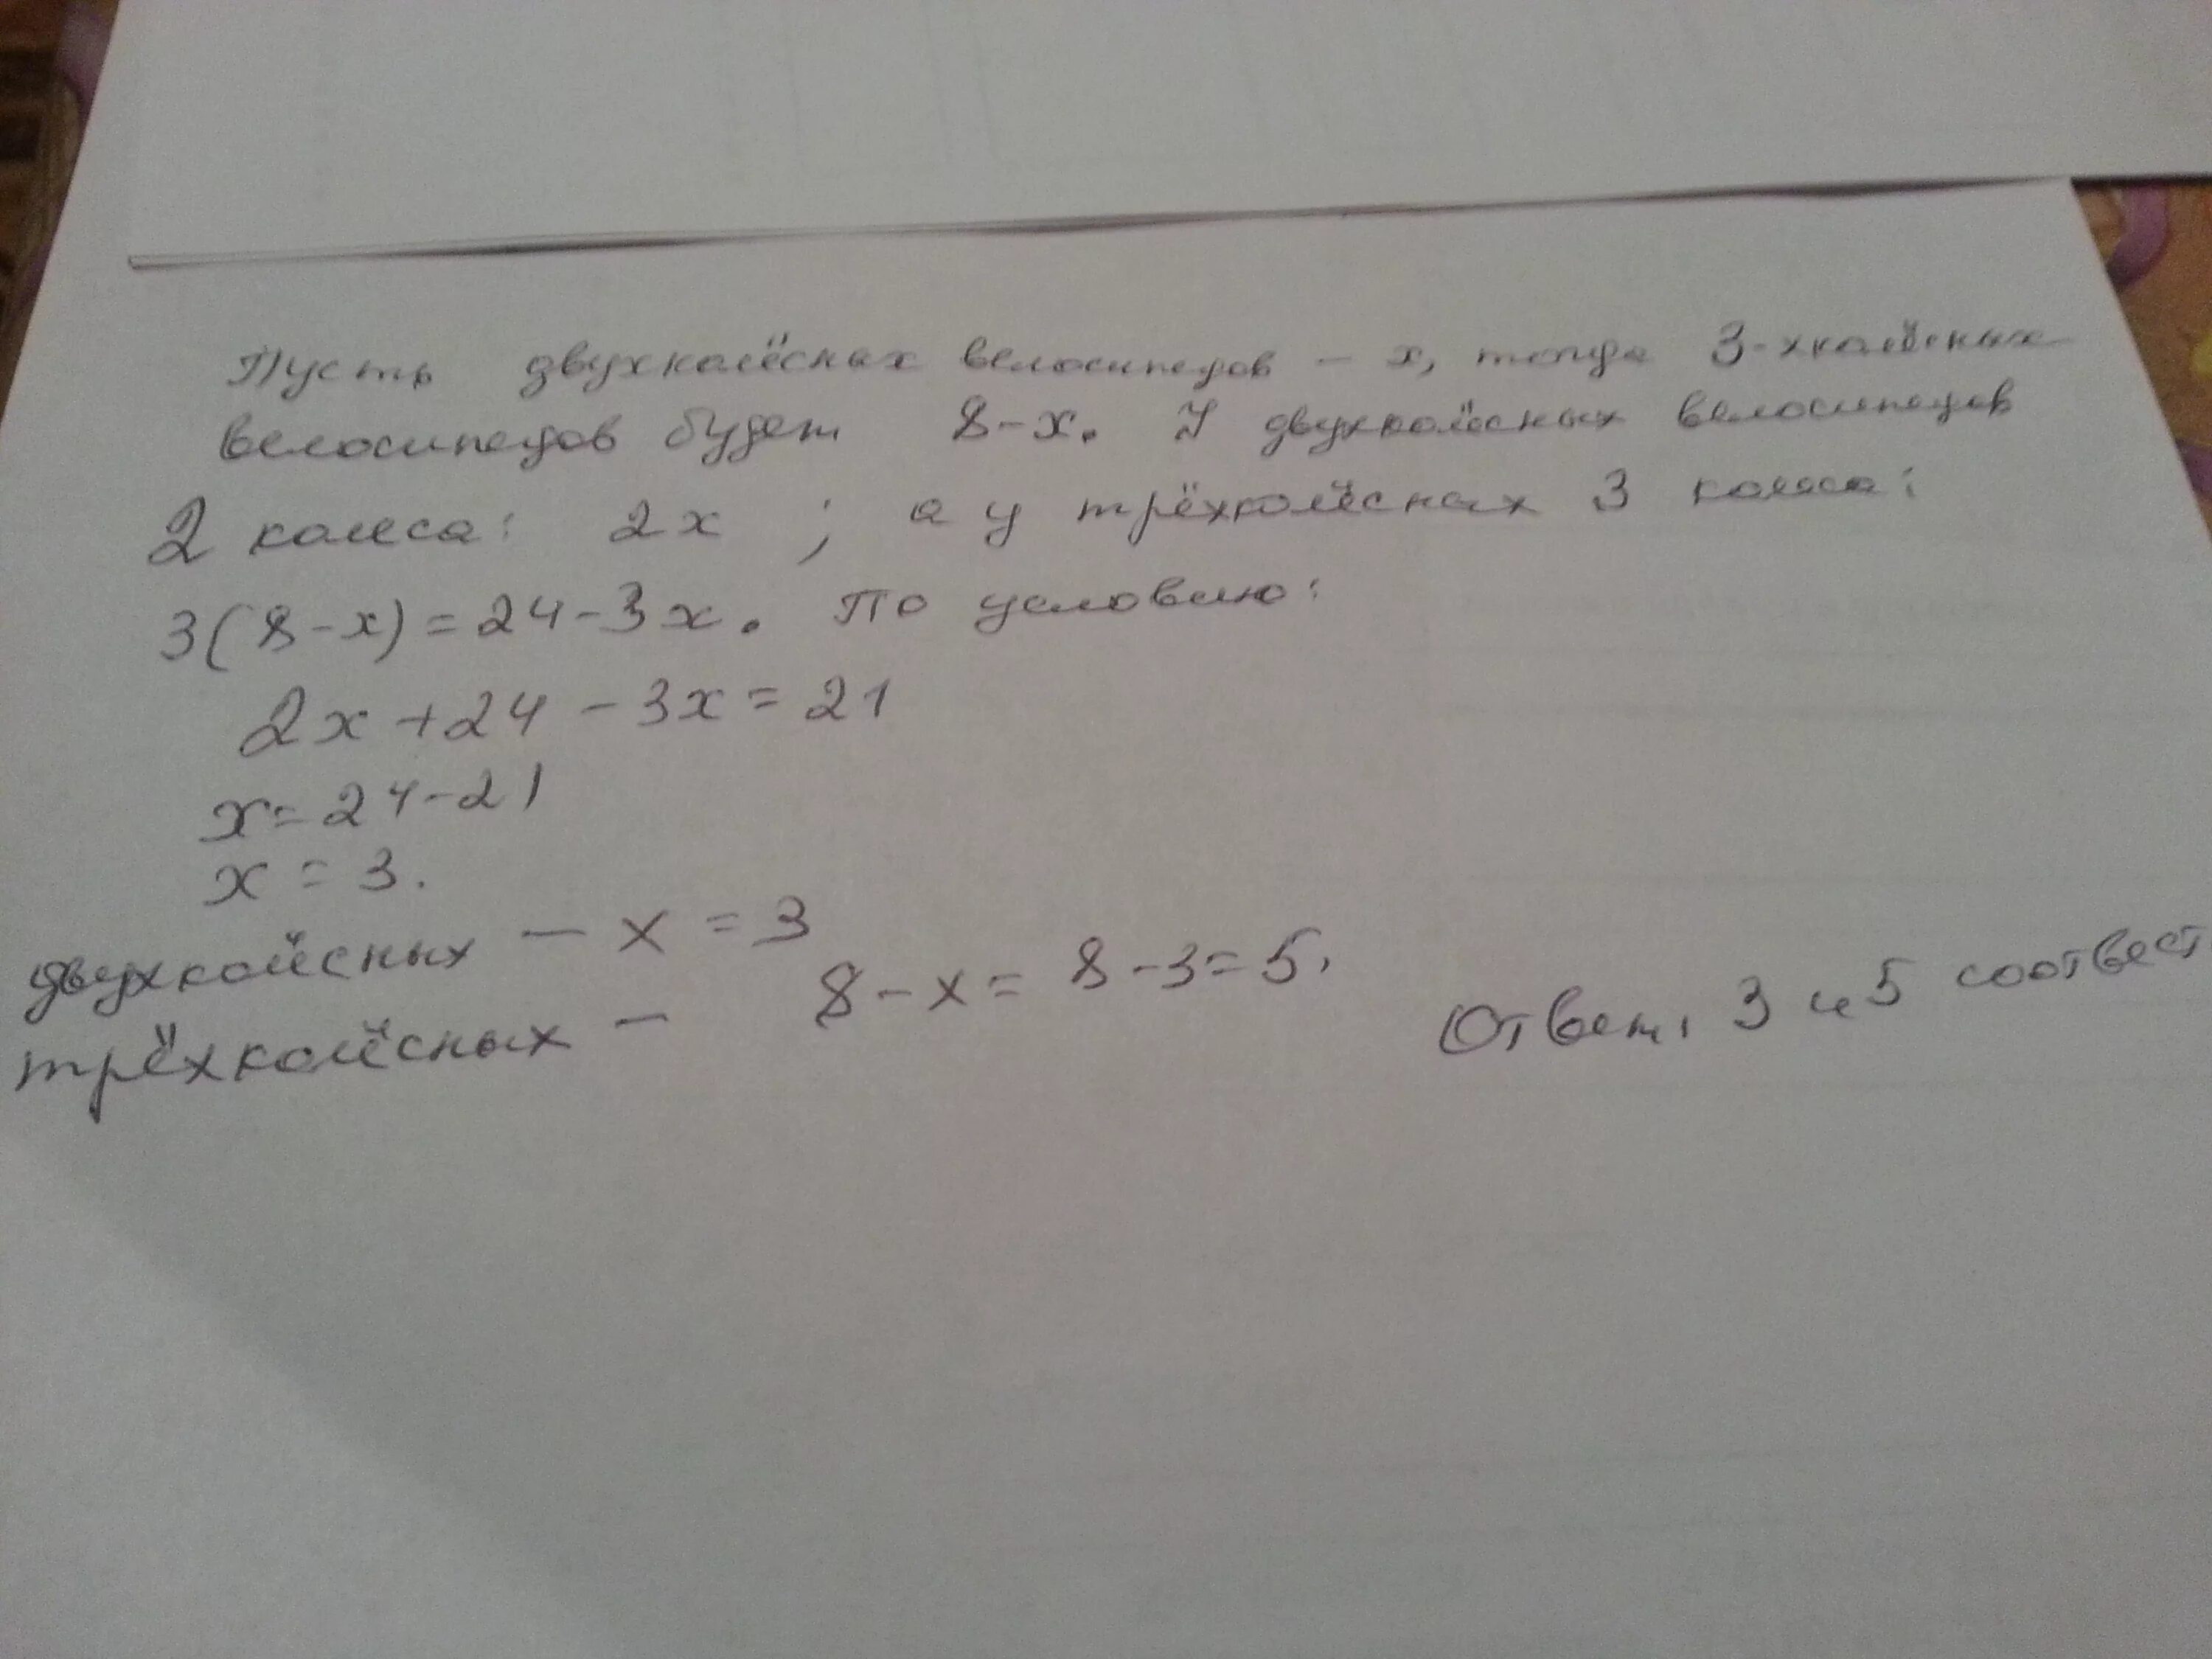 Пусть двухколёсных велосипедов – x, тогда 3-хколёсных
велосипедов будет 8-x. У двухколёсных велосипедов
2 колеса: 2x ; а у трёхколёсных 3 колеса:
3(8-x)=24-3x. По условию:
2x+24-3x=21
x=24-21
x=3.
двухколёсных – x=3
трёхколёсных – 8-x=8-3=5.
Ответ. 3 и 5 соотвест